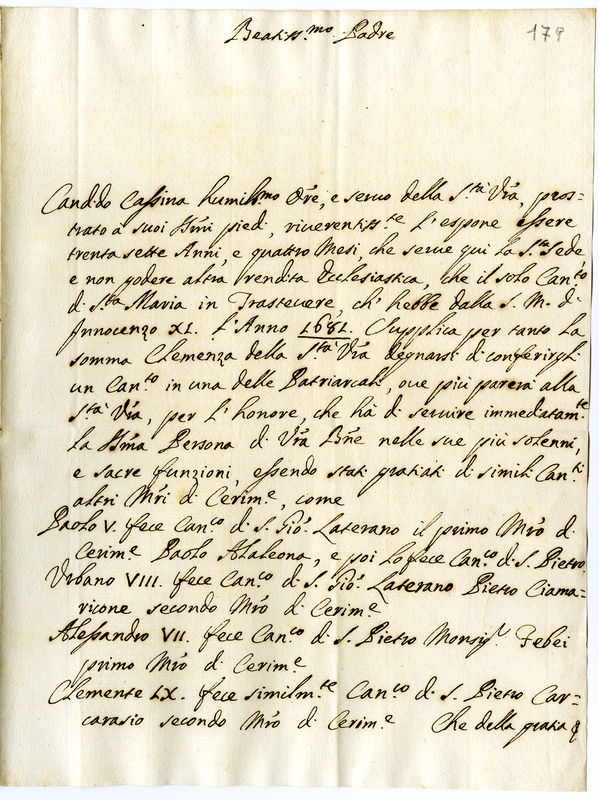 Beatiss.mo Padre
179
Candido Cassina humiliss.mo Ore, e servo della S.ta Vra, pros=
trato à suoi Ssmi piedi, riverentiss.te l'espone essere
trenta sette Anni, e quattro Mesi, che serve qui la S.ta Sede,
e non godere altra rendita Ecclesiastica, che il solo Can.to
di S.ta Maria in Trastevere, ch' hebbe dalla S. M. di
Innocenzo XI. l'Anno 1681. Supplica per tanto la
somma Clemenza della S.ta Vra degnarsi di conferirgli
un Can.to in una delle Patriarcali, ove più parerà alla
S.ta Vra, per l'honore, che hà di servire immediatam.te
la Ssma Persona di Vra Bne nelle sue più solenni,
e sacre funzioni, essendo stati gratiati di simili Can.ti
altri Mri di Cerim.e, come
Paolo V. fece Can.co di S. Gio: Laterano il primo Mro di
Cerim.e Paolo Alaleona, e poi lo fece Can.co di S. Pietro.
Urbano VIII. fece Can.co di S. Gio: Laterano Pietro Ciama=
ricone secondo Mro di Cerim.e
Alessandro VII. fece Can.co di S. Pietro Monsig.r Febei
primo Mro di Cerim.e
Clemente IX. fece similm.te Can.co di S. Pietro Car=
carasio secondo Mro di Cerim.e Che della gratia